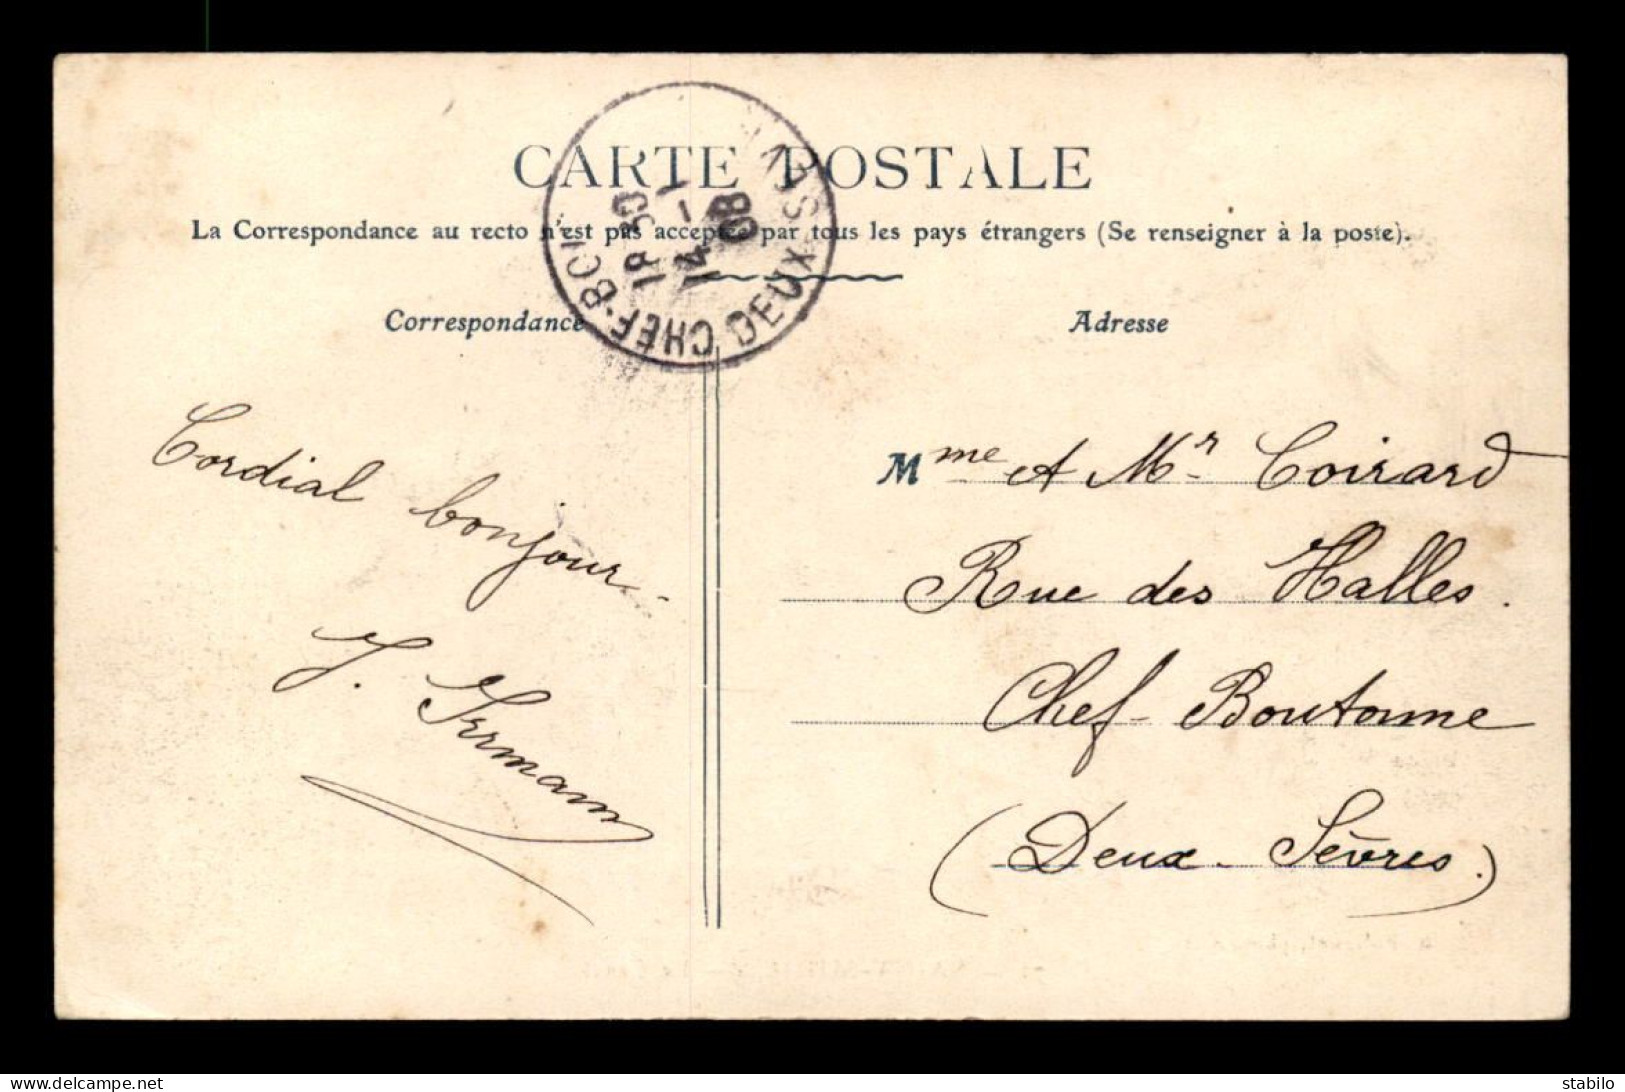 CARTE POSTALE
La Correspondance au recto n'est pas acceptée par tous les pays étrangers (Se renseigner à la poste).
CHEF-BO
DEUX-S
18 30
14 -1
08
Correspondance
Adresse
Cordial bonjour.
J.
Mme et Mr Coirard
Rue des Halles.
Chef-Boutonne
(Deux-Sèvres.)
www.delcampe.net
stabilo